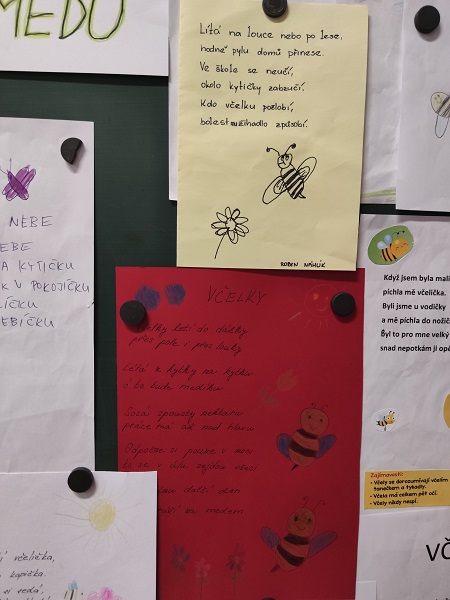 MEDU
Lítá na louce nebo po lese,
hodně pylu domů přinese.
Ve škole se neučí,
okolo kytičky zabzučí.
Kdo včelku pozlobí,
bolest mu žihadlo způsobí.
NEBE
EBE
A KYTIČKU
K V POKOJÍČKU
ÍČKU
EBÍČKU
VČELKY
letí do dálky
přes pole i přes louky
Lítá z kytky na kytku
a to bude medíku
Sucá spousty nektaru
práce má až nad hlavu
v noci
další den
za medem
Když jsem byla mali
píchla mě včelička.
Byli jsme u vodičky
a mě píchla do nožič
Byl to pro mne velký
snad nepotkám ji opě
Zajímavosti:
Včely se dorozumívají včelím
tanečkem a tykadly.
Včela má celkem pět očí.
Včely nikdy nespí.
VČ
včelička,
kapička.